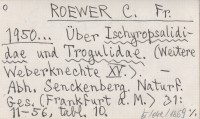 ROEWER C. Fr.
1950... Über Ischyropsalidi-
dae und Trogulidae. (Weitere
Weberknechte XV.). –
Abh. Senckenberg. Naturf.
Ges. (Frankfurt a. M.) 31:
11-56, tabl. 10.